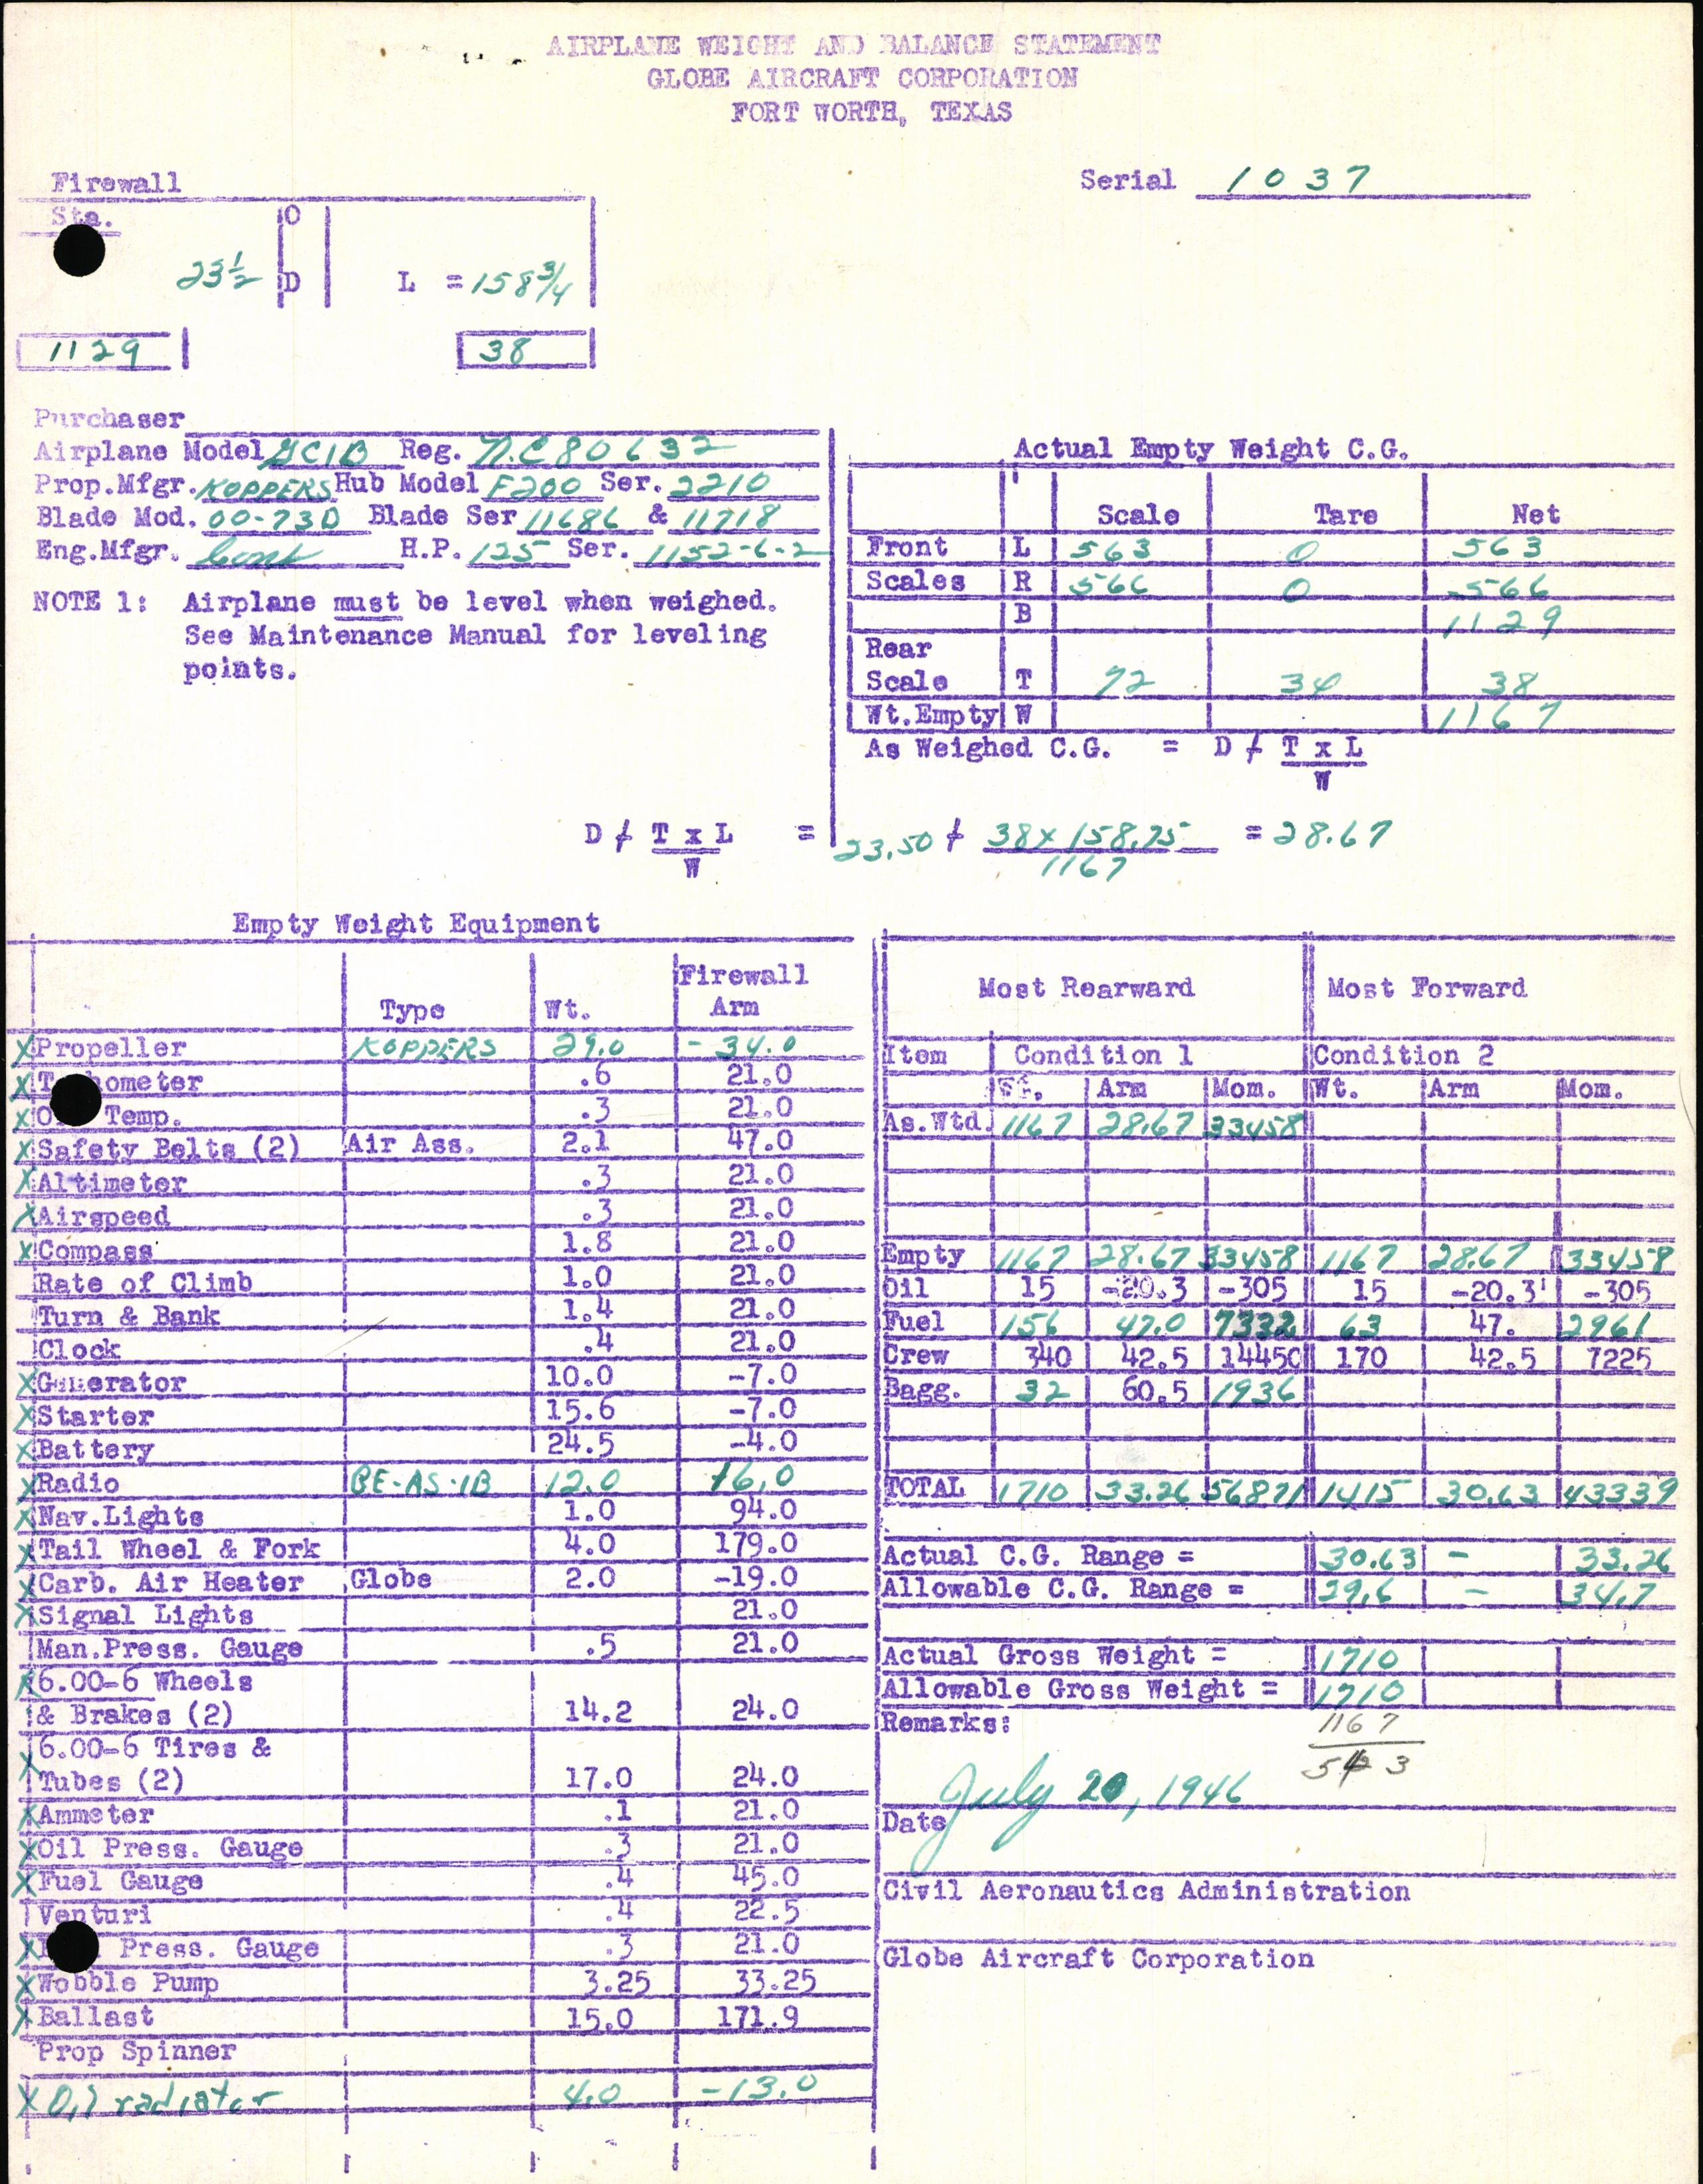 AIRPLANE WEIGHT AND BALANCE STATEMENT
GLOBE AIRCRAFT CORPORATION
FORT WORTH, TEXAS
Serial 1037
Firewall
Sta.
O
23½ D L = 158 3/4
1129 38
Purchaser
Airplane Model GC1B Reg. N.C 80632
Prop.Mfgr. KOPPERS Hub Model F200 Ser. 2210
Blade Mod. 00-73D Blade Ser 11686 & 11718
Eng.Mfgr. Cont H.P. 125 Ser. 1152-6-2
NOTE 1: Airplane must be level when weighed.
See Maintenance Manual for leveling
points.
Actual Empty Weight C.G.
Scale Tare Net
Front L 563 0 563
Scales R 566 0 566
B 1129
Rear
Scale T 72 34 38
Wt.Empty W 1167
As Weighed C.G. = D + T x L
W
D + T x L = 23.50 + 38 x 158.75 = 28.67
W 1167
Empty Weight Equipment
Type Wt. Firewall Arm
X Propeller KOPPERS 29.0 -34.0
X T hometer .6 21.0
X O Temp. .3 21.0
X Safety Belts (2) Air Ass. 2.1 47.0
X Altimeter .3 21.0
X Airspeed .3 21.0
X Compass 1.8 21.0
Rate of Climb 1.0 21.0
Turn & Bank 1.4 21.0
Clock .4 21.0
X Generator 10.0 -7.0
X Starter 15.6 -7.0
X Battery 24.5 -4.0
X Radio BE-AS-1B 12.0 16.0
X Nav.Lights 1.0 94.0
X Tail Wheel & Fork 4.0 179.0
X Carb. Air Heater Globe 2.0 -19.0
X Signal Lights 21.0
Man.Press. Gauge .5 21.0
X 6.00-6 Wheels
& Brakes (2) 14.2 24.0
X 6.00-6 Tires &
Tubes (2) 17.0 24.0
X Ammeter .1 21.0
X Oil Press. Gauge .3 21.0
X Fuel Gauge .4 45.0
Venturi .4 22.5
X Press. Gauge .3 21.0
X Wobble Pump 3.25 33.25
X Ballast 15.0 171.9
Prop Spinner
X Oil radiator 4.0 -13.0
Most Rearward Most Forward
Item Condition 1 Condition 2
Wt. Arm Mom. Wt. Arm Mom.
As.Wtd. 1167 28.67 33458
Empty 1167 28.67 33458 1167 28.67 33458
Oil 15 -20.3 -305 15 -20.3 -305
Fuel 156 47.0 7332 63 47. 2961
Crew 340 42.5 14450 170 42.5 7225
Bagg. 32 60.5 1936
TOTAL 1710 33.26 56871 1415 30.63 43339
Actual C.G. Range = 30.63 - 33.26
Allowable C.G. Range = 29.6 - 34.7
Actual Gross Weight = 1710
Allowable Gross Weight = 1710
Remarks: 1167
July 20, 1946
Date
Civil Aeronautics Administration
Globe Aircraft Corporation